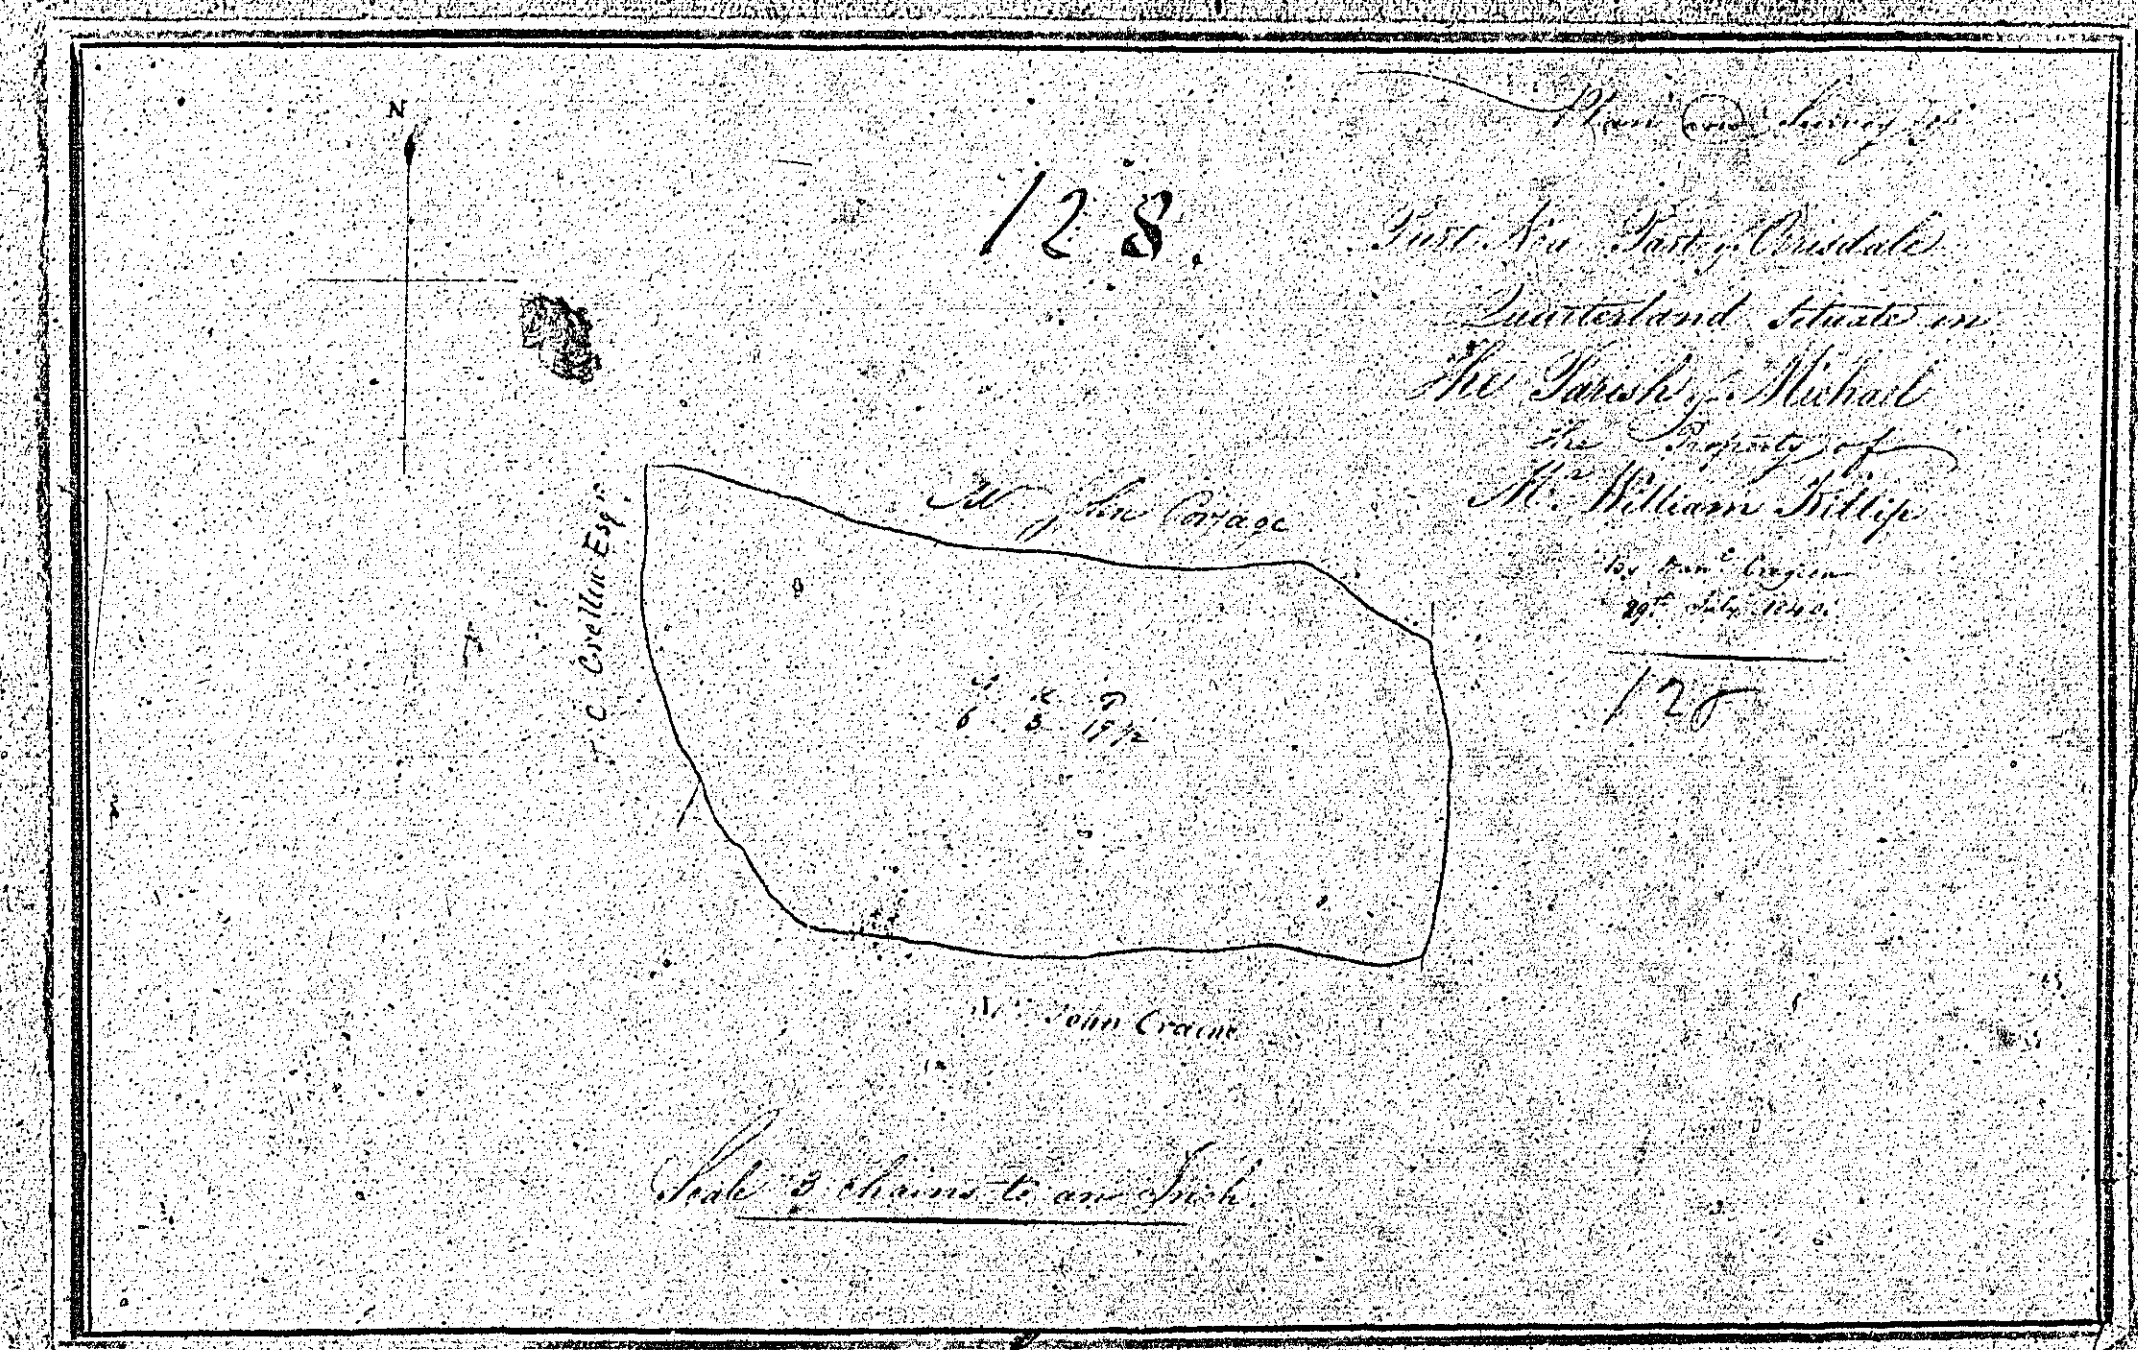 N
128.
Plan and Survey of
Part of Orrisdale
Quarterland Situate in
The Parish of Michael
the Property of
Mr. William Killip
29th July 1840.
128
Mr John
J. C. Crellin Esqr.
A R P
6 3 19 1/2
Mr John Craine
Scale 3 chains to an Inch.